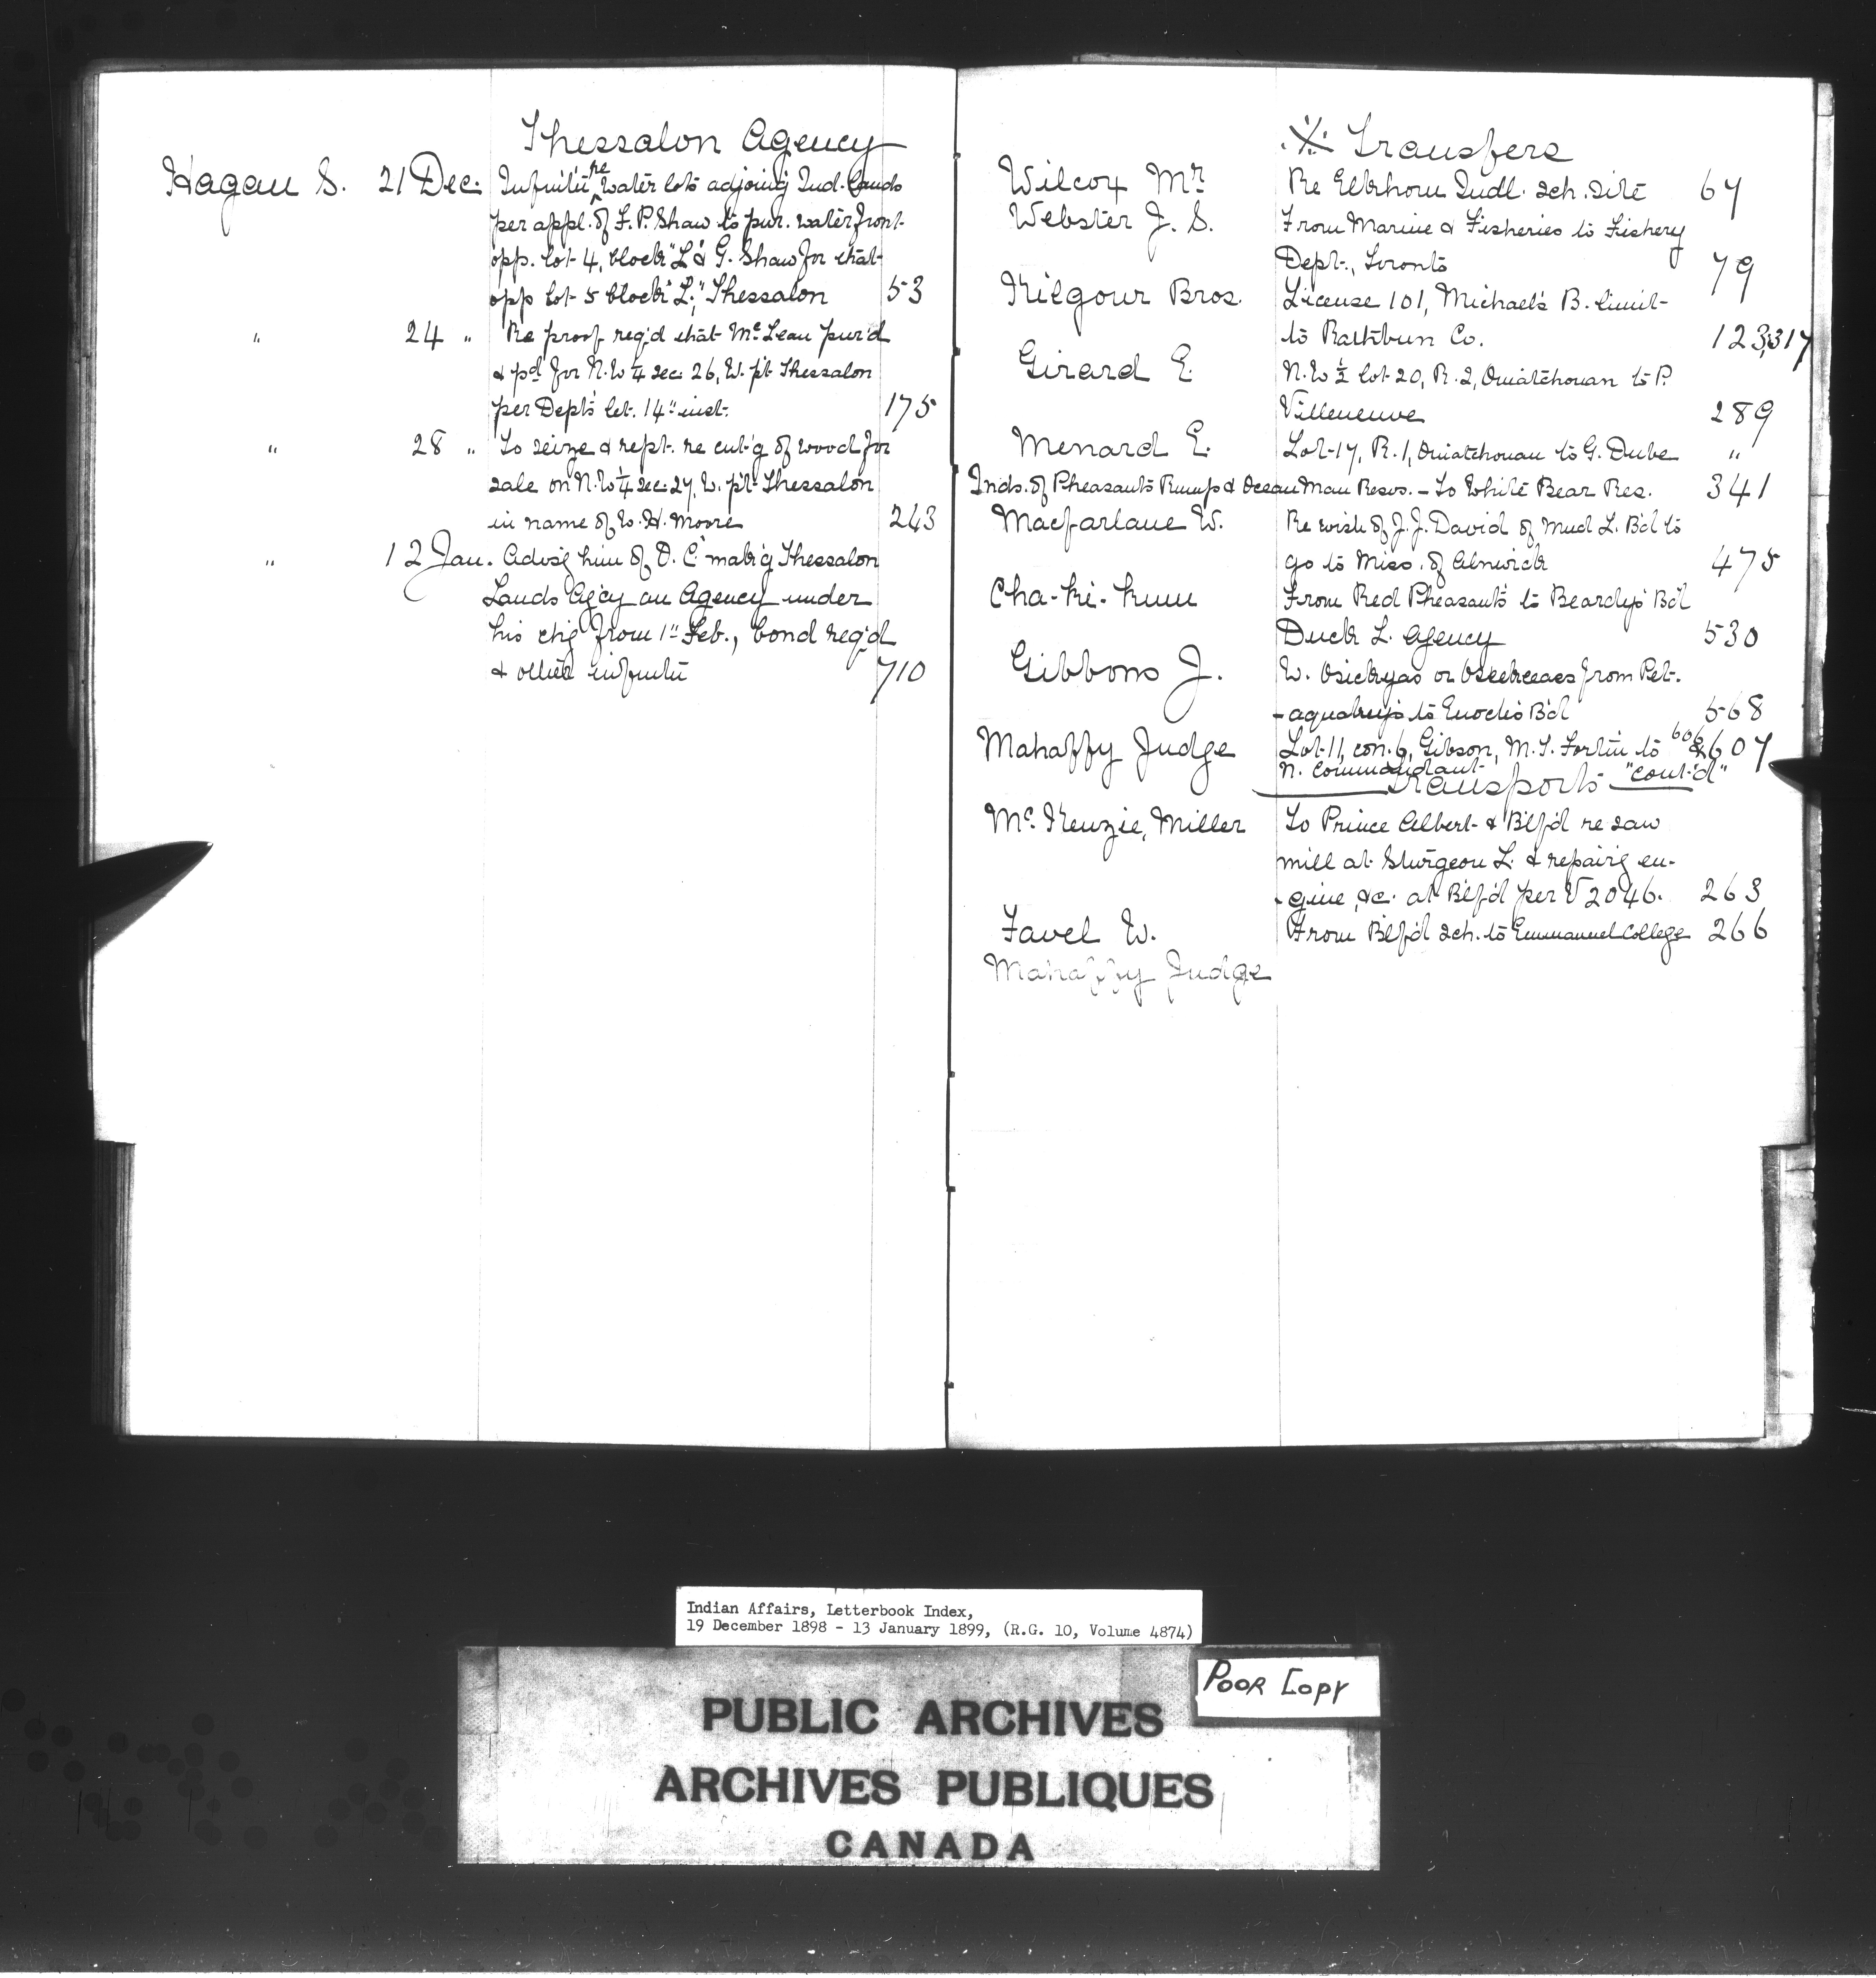 Thessalon Agency
Hagan S. 21 Dec. Infmt'n re water lots adjoin'g Ind. Lands
per appl. of F. P. Shaw to pur. water front
opp. lot 4, block "L" & G. Shaw for that
opp lot 5 block "L," Thessalon 53
" 24 " Re proof req'd that McLean pur'd
& pd for N.W ¼ sec. 26, W. p't Thessalon
per Dept's let. 14" inst. 175
" 28 " To seize & rept. re cut'g of wood for
sale on N.W ¼ sec. 27, W. p't Thessalon
in name of W. H. Moore 243
" 12 Jan. Advis'g him of O. C. mak'g Thessalon
Lands Ag'cy an Agency under
his chg from 1" Feb., bond req'd
& other infmt'n 710
※ Transfers
Wilcox Mr. Re Elkhorn Indl. sch. site 67
Webster J. S. From Marine & Fisheries to Fishery
Dept., Toronto 79
Kilgour Bros. License 101, Michael's B. limit
to Rathbun Co. 123, 317
Girard E. N.W ½ lot 20, R. 2, Ouiatchouan to P.
Villeneuve 289
Menard E. Lot 17, R. 1, Ouiatchouan to G. Dube "
Inds. of Pheasants Rump & Ocean Man Resvs. - To White Bear Res. 341
Macfarlane W. Re wish of J. J. David of Mud L. B'd to
go to Miss. of Alnwick 475
Cha-ki-kum From Red Pheasant's to Beardy's B'd
Duck L. Agency 530
Gibbons J. W. from Pet-
-aquakeys to Enoch's B'd 568
Mahaffy Judge Lot 11, con. 6, Gibson, M. T. Fortin to 606 & 607
N. Commandant
Transports "cont'd"
McKenzie, Miller To Prince Albert & B'lf'd re saw
mill at Sturgeon L. & repair'g en-
-gine, &c. at B'lf'd per V 2046. 263
Favel W. From B'lf'd sch. to Emmanuel College 266
Mahaffy Judge
Indian Affairs, Letterbook Index,
19 December 1898 - 13 January 1899, (R.G. 10, Volume 4874)
POOR COPY
PUBLIC ARCHIVES
ARCHIVES PUBLIQUES
CANADA